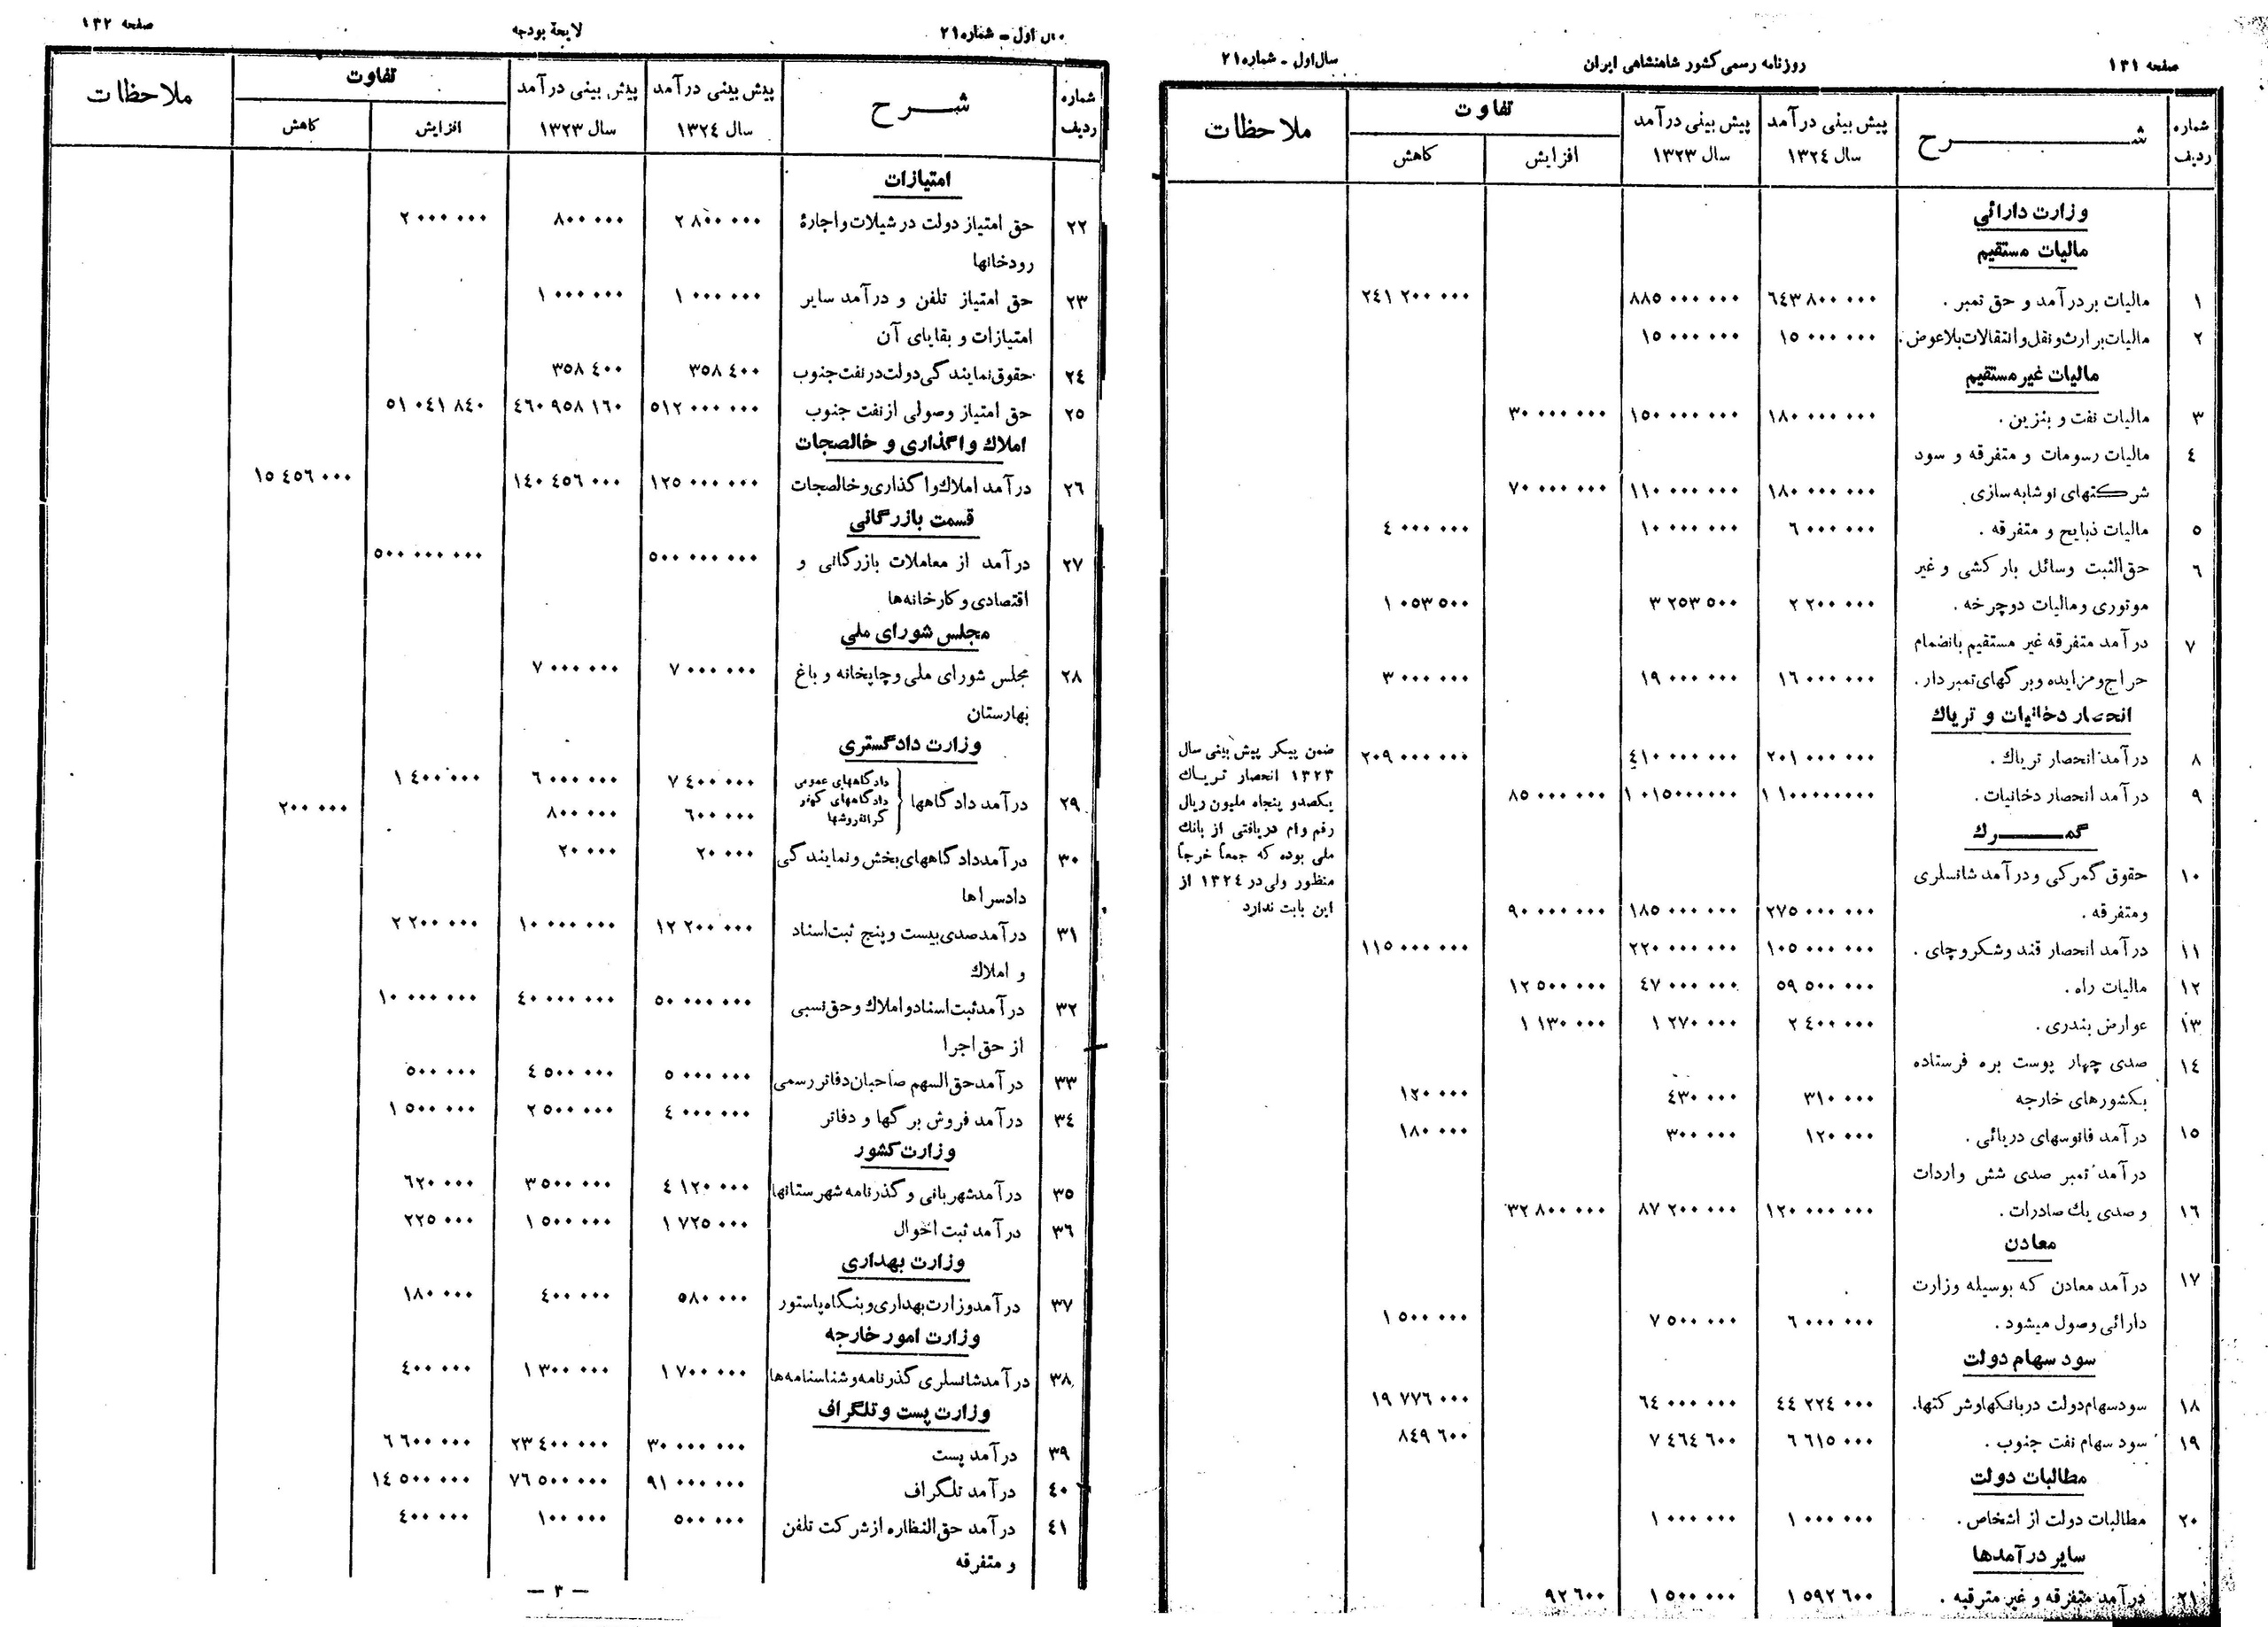 صفحه ۱۳۱ روزنامه رسمی کشور شاهنشاهی ایران سال اول ـ شماره ۲۱
شماره ردیف شــرح پیش بینی درآمد سال ۱۳۲٤ پیش بینی درآمد سال ۱۳۲۳ تفاوت ملاحظات
افزایش کاهش
وزارت دارائی
مالیات مستقیم
۱ مالیات بر درآمد و حق تمبر . ٦٤۳ ۸۰۰ ۰۰۰ ۸۸۵ ۰۰۰ ۰۰۰ ۲٤۱ ۲۰۰ ۰۰۰
۲ مالیات بر ارث و نقل و انتقالات بلاعوض . ۱۵ ۰۰۰ ۰۰۰ ۱۵ ۰۰۰ ۰۰۰
مالیات غیر مستقیم
۳ مالیات نفت و بنزین . ۱۸۰ ۰۰۰ ۰۰۰ ۱۵۰ ۰۰۰ ۰۰۰ ۳۰ ۰۰۰ ۰۰۰
٤ مالیات رسومات و متفرقه و سود
شرکتهای نوشابه سازی ۱۸۰ ۰۰۰ ۰۰۰ ۱۱۰ ۰۰۰ ۰۰۰ ۷۰ ۰۰۰ ۰۰۰
۵ مالیات ذبایح و متفرقه . ٦ ۰۰۰ ۰۰۰ ۱۰ ۰۰۰ ۰۰۰ ٤ ۰۰۰ ۰۰۰
٦ حق الثبت وسائل بارکشی و غیر
موتوری و مالیات دوچرخه . ۲ ۲۰۰ ۰۰۰ ۳ ۲۵۳ ۵۰۰ ۱ ۰۵۳ ۵۰۰
۷ درآمد متفرقه غیر مستقیم بانضمام
حراج و مزایده و برگهای تمبردار . ۱٦ ۰۰۰ ۰۰۰ ۱۹ ۰۰۰ ۰۰۰ ۳ ۰۰۰ ۰۰۰
انحصار دخانیات و تریاك
۸ درآمد انحصار تریاك . ۲۰۱ ۰۰۰ ۰۰۰ ٤۱۰ ۰۰۰ ۰۰۰ ۲۰۹ ۰۰۰ ۰۰۰
ضمن پیکر پیش بینی سال
۱۳۲۳ انحصار تریاك
یکصدو پنجاه ملیون ریال
رقم وام دریافتی از بانك
ملی بوده که جمعاً خرجاً
منظور ولی در ۱۳۲٤ از
این بابت ندارد
۹ درآمد انحصار دخانیات . ۱ ۱۰۰۰۰۰۰۰۰ ۱ ۰۱۵۰۰۰۰۰۰ ۸۵ ۰۰۰ ۰۰۰
گمــرك
۱۰ حقوق گمرکی و درآمد شانسلری
و متفرقه . ۲۷۵ ۰۰۰ ۰۰۰ ۱۸۵ ۰۰۰ ۰۰۰ ۹۰ ۰۰۰ ۰۰۰
۱۱ درآمد انحصار قند و شکر و چای . ۱۰۵ ۰۰۰ ۰۰۰ ۲۲۰ ۰۰۰ ۰۰۰ ۱۱۵ ۰۰۰ ۰۰۰
۱۲ مالیات راه . ۵۹ ۵۰۰ ۰۰۰ ٤۷ ۰۰۰ ۰۰۰ ۱۲ ۵۰۰ ۰۰۰
۱۳ عوارض بندری . ۲ ٤۰۰ ۰۰۰ ۱ ۲۷۰ ۰۰۰ ۱ ۱۳۰ ۰۰۰
۱٤ صدی چهار پوست بره فرستاده
بکشورهای خارجه ۳۱۰ ۰۰۰ ٤۳۰ ۰۰۰ ۱۲۰ ۰۰۰
۱۵ درآمد فانوسهای دریائی . ۱۲۰ ۰۰۰ ۳۰۰ ۰۰۰ ۱۸۰ ۰۰۰
درآمد تمبر صدی شش واردات
۱٦ و صدی یك صادرات . ۱۲۰ ۰۰۰ ۰۰۰ ۸۷ ۲۰۰ ۰۰۰ ۳۲ ۸۰۰ ۰۰۰
معادن
۱۷ درآمد معادن که بوسیله وزارت
دارائی وصول میشود . ٦ ۰۰۰ ۰۰۰ ۷ ۵۰۰ ۰۰۰ ۱ ۵۰۰ ۰۰۰
سود سهام دولت
۱۸ سود سهام دولت در بانکها و شرکتها . ٤٤ ۲۲٤ ۰۰۰ ٦٤ ۰۰۰ ۰۰۰ ۱۹ ۷۷٦ ۰۰۰
۱۹ سود سهام نفت جنوب . ٦ ٦۱۵ ۰۰۰ ۷ ٤٦٤ ٦۰۰ ۸٤۹ ٦۰۰
مطالبات دولت
۲۰ مطالبات دولت از اشخاص . ۱ ۰۰۰ ۰۰۰ ۱ ۰۰۰ ۰۰۰
سایر درآمدها
۲۱ درآمد متفرقه و غیر مترقبه . ۱ ۵۹۲ ٦۰۰ ۱ ۵۰۰ ۰۰۰ ۹۲ ٦۰۰
اول ـ شماره ۲۱ لایحهٔ بودجه صفحه ۱۳۲
شماره ردیف شــرح پیش بینی درآمد سال ۱۳۲٤ پیش بینی درآمد سال ۱۳۲۳ تفاوت ملاحظات
افزایش کاهش
امتیازات
۲۲ حق امتیاز دولت در شیلات و اجارهٔ ۲ ۸۰۰ ۰۰۰ ۸۰۰ ۰۰۰ ۲ ۰۰۰ ۰۰۰
رودخانها
۲۳ حق امتیاز تلفن و درآمد سایر ۱ ۰۰۰ ۰۰۰ ۱ ۰۰۰ ۰۰۰
امتیازات و بقایای آن
۲٤ حقوق نمایندگی دولت در نفت جنوب ۳۵۸ ٤۰۰ ۳۵۸ ٤۰۰
۲۵ حق امتیاز وصولی از نفت جنوب ۵۱۲ ۰۰۰ ۰۰۰ ٤٦۰ ۹۵۸ ۱٦۰ ۵۱ ۰٤۱ ۸٤۰
املاك واگذاری و خالصجات
۲٦ درآمد املاك واگذاری و خالصجات ۱۲۵ ۰۰۰ ۰۰۰ ۱٤۰ ٤۵٦ ۰۰۰ ۱۵ ٤۵٦ ۰۰۰
قسمت بازرگانی
۲۷ درآمد از معاملات بازرگانی و ۵۰۰ ۰۰۰ ۰۰۰ ۵۰۰ ۰۰۰ ۰۰۰
اقتصادی و کارخانه‌ها
مجلس شورای ملی
۲۸ مجلس شورای ملی و چاپخانه و باغ ۷ ۰۰۰ ۰۰۰ ۷ ۰۰۰ ۰۰۰
بهارستان
وزارت دادگستری
۲۹ درآمد دادگاهها { دادگاههای عمومی ۷ ٤۰۰ ۰۰۰ ٦ ۰۰۰ ۰۰۰ ۱ ٤۰۰ ۰۰۰
دادگاههای کیفر گرانفروشها ٦۰۰ ۰۰۰ ۸۰۰ ۰۰۰ ۲۰۰ ۰۰۰
۳۰ درآمد دادگاههای بخش و نمایندگی ۲۰ ۰۰۰ ۲۰ ۰۰۰
دادسراها
۳۱ درآمد صدی بیست و پنج ثبت اسناد ۱۲ ۲۰۰ ۰۰۰ ۱۰ ۰۰۰ ۰۰۰ ۲ ۲۰۰ ۰۰۰
و املاك
۳۲ درآمد ثبت اسناد و املاك و حق نسبی ۵۰ ۰۰۰ ۰۰۰ ٤۰ ۰۰۰ ۰۰۰ ۱۰ ۰۰۰ ۰۰۰
از حق اجرا
۳۳ درآمد حق السهم صاحبان دفاتر رسمی ۵ ۰۰۰ ۰۰۰ ٤ ۵۰۰ ۰۰۰ ۵۰۰ ۰۰۰
۳٤ درآمد فروش برگها و دفاتر ٤ ۰۰۰ ۰۰۰ ۲ ۵۰۰ ۰۰۰ ۱ ۵۰۰ ۰۰۰
وزارت کشور
۳۵ درآمد شهربانی و گذرنامه شهرستانها ٤ ۱۲۰ ۰۰۰ ۳ ۵۰۰ ۰۰۰ ٦۲۰ ۰۰۰
۳٦ درآمد ثبت احوال ۱ ۷۲۵ ۰۰۰ ۱ ۵۰۰ ۰۰۰ ۲۲۵ ۰۰۰
وزارت بهداری
۳۷ درآمد وزارت بهداری و بنگاه پاستور ۵۸۰ ۰۰۰ ٤۰۰ ۰۰۰ ۱۸۰ ۰۰۰
وزارت امور خارجه
۳۸ درآمد شانسلری گذرنامه و شناسنامه‌ها ۱ ۷۰۰ ۰۰۰ ۱ ۳۰۰ ۰۰۰ ٤۰۰ ۰۰۰
وزارت پست و تلگراف
۳۹ درآمد پست ۳۰ ۰۰۰ ۰۰۰ ۲۳ ٤۰۰ ۰۰۰ ٦ ٦۰۰ ۰۰۰
٤۰ درآمد تلگراف ۹۱ ۰۰۰ ۰۰۰ ۷٦ ۵۰۰ ۰۰۰ ۱٤ ۵۰۰ ۰۰۰
٤۱ درآمد حق النظاره از شرکت تلفن ۵۰۰ ۰۰۰ ۱۰۰ ۰۰۰ ٤۰۰ ۰۰۰
و متفرقه
— ۳ —